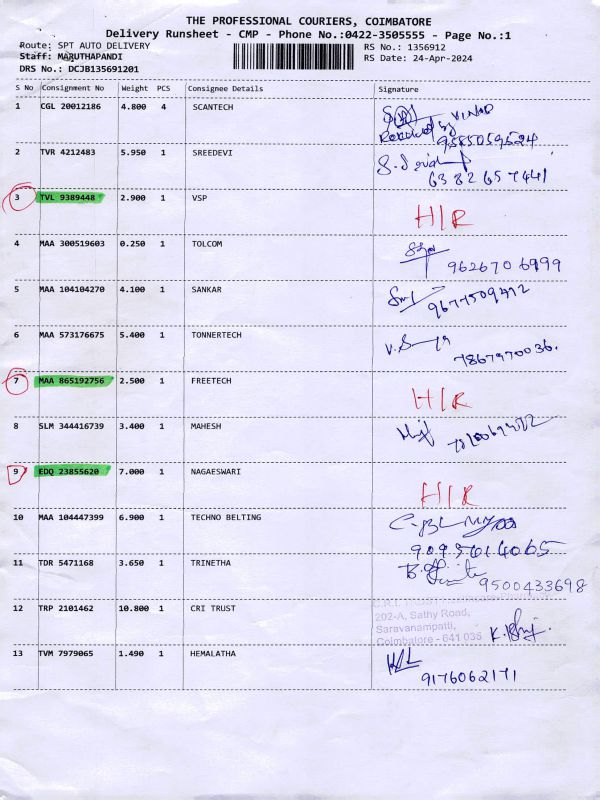 THE PROFESSIONAL COURIERS, COIMBATORE
Delivery Runsheet - CMP - Phone No.:0422-3505555 - Page No.:1
Route: SPT AUTO DELIVERY
RS No.: 1356912
Staff: MARUTHAPANDI
RS Date: 24-Apr-2024
DRS No.: DCJB135691201
S No Consignment No Weight PCS Consignee Details Signature
1 CGL 20012186 4.800 4 SCANTECH
2 TVR 4212483 5.950 1 SREEDEVI
6382657441
3 TVL 9389448 2.900 1 VSP
H/R
4 MAA 300519603 0.250 1 TOLCOM
9626706999
5 MAA 104104270 4.100 1 SANKAR
6 MAA 573176675 5.400 1 TONNERTECH
7867970036.
7 MAA 865192756 2.500 1 FREETECH
H/R
8 SLM 344416739 3.400 1 MAHESH
9 EDQ 23855620 7.000 1 NAGAESWARI
H/R
10 MAA 104447399 6.900 1 TECHNO BELTING
11 TDR 5471168 3.650 1 TRINETHA
9500433698
12 TRP 2101462 10.800 1 CRI TRUST
202-A, Sathy Road,
Saravanampatti,
Coimbatore - 641 035
13 TVM 7979065 1.490 1 HEMALATHA
9176062171